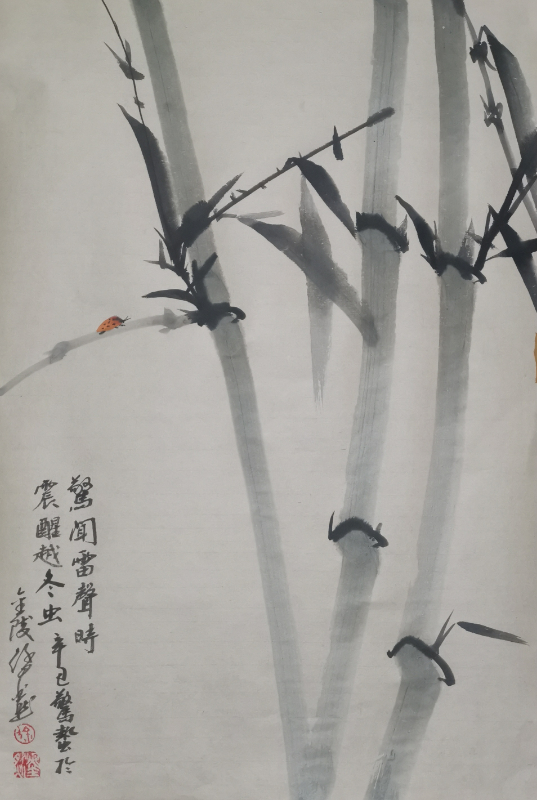 驚聞雷聲時
震醒越冬虫
辛巳驚蟄於
金陵